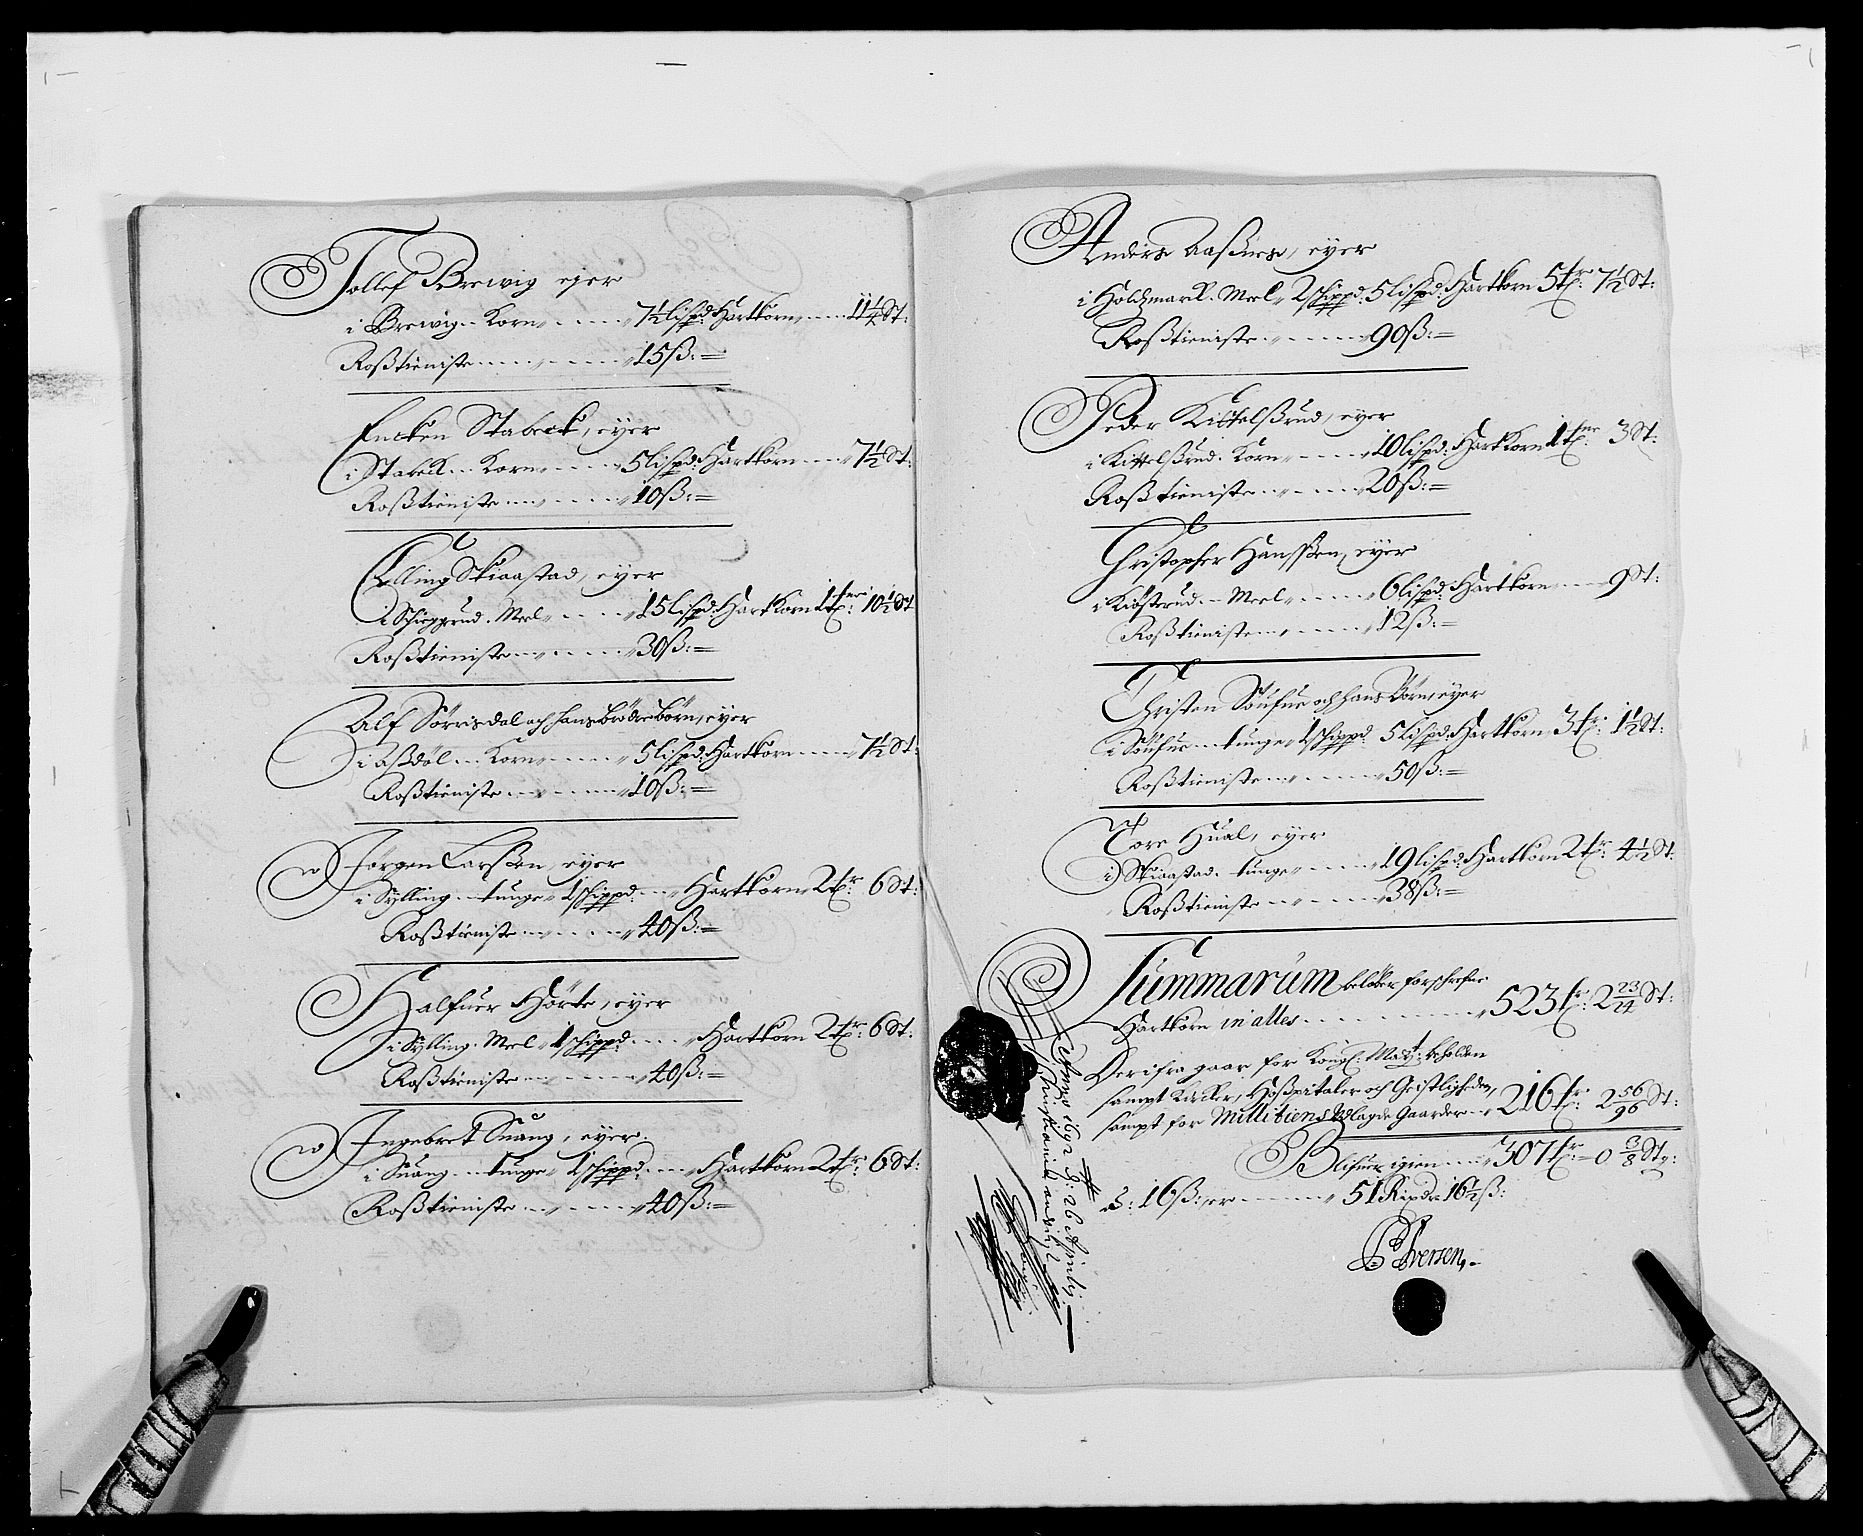 Tollef Brewig ejer
i Brewig Korn 7½ lispd: Hartkorn 11¼ St:
Roßtieniste 15ß:
Encken Stabeck, eyer
i Stabek Korn 5 lispd: Hartkorn 7½ St:
Roßtieniste 10ß:
Elling Skiaastad, eyer
i Meel 15 lispd: Hartkorn 1 tr: 10½ St
Roßtieniste 30ß:
Alf Sörrisdal och hans brödrebörn, eyer
i Aßdøl Korn 5 lispd: Hartkorn 7½ St:
Roßtieniste 10ß:
Jörgen Larßen, eyer
i Sylling tunge 1 schippd: Hartkorn 2 tr: 6 St:
Roßtieniste 40ß:
Halfuer Hörte, eyer
i Sylling Meel 1 schippd: Hartkorn 2 tr: 6 St:
Roßtieniste 40ß:
Ingebret Snang, eyer
i Snang tunge 1 schippd: Hartkorn 2 tr: 6 St:
Roßtieniste 40ß:
Anders eyer
i Holdzmark Meel 2 schippd: 5 lispd: Hartkorn 5 tr: 7½ St:
Roßtieniste 90ß:
Peder Kittelßrud, eyer
i Kittelßrud Korn 10 lispd: Hartkorn 1 tne 3 St:
Roßtieniste 20ß:
Christopher Hanssen, eyer
i Meel 6 lispd: Hartkorn 9 St:
Roßtieniste 12ß:
Christen och hans Börn, eyer
i tunge 1 schippd: 5 lispd: Hartkorn 3 tr: 1½ St:
Roßtieniste 50ß:
Tore Hual, eyer
i Skiaastad tunge 19 lispd: Hartkorn 2 tr: 4½ St:
Roßtieniste 38ß:
Summarum beløber forschrefne
Hartkorn in alles 523 tr: 2 23/24 St:
Derifra gaar for Kongl: Maytz: beholden
sampt Kircker, Hoßpitaler och Geistligheden,
sampt for Militiens Udlagde Gaarder 216 tr: 2 56/96 St:
Blifuer igien 307 tr: 0 3/8 St:
å: 16ß: er 51 Rixdr 16½ß:
Iversen
Anno 1692 d: 26 Aprilij